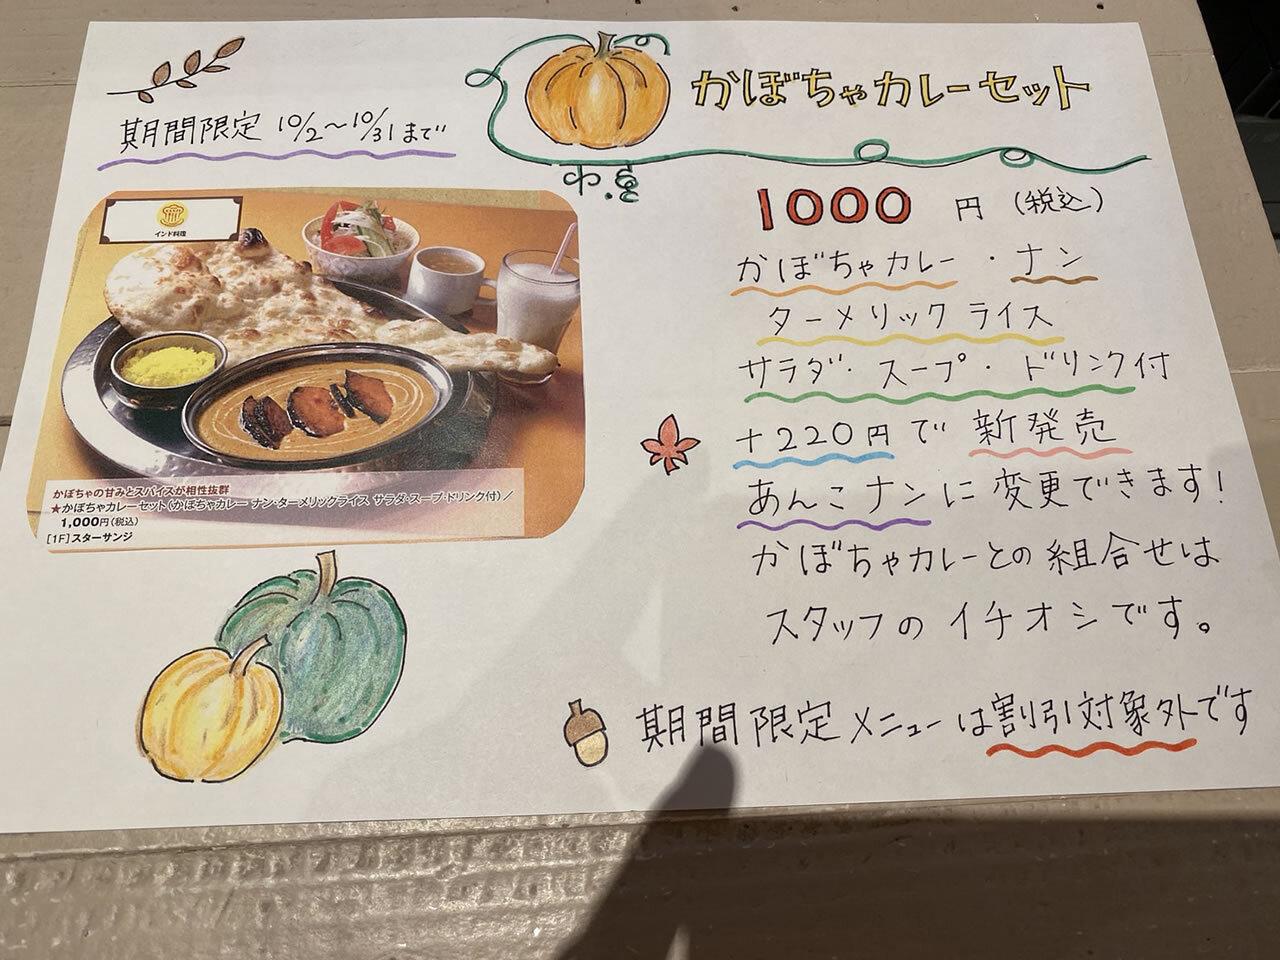 かぼちゃカレーセット
期間限定 10/2～10/31まで
1000円(税込)
かぼちゃカレー・ナン
ターメリックライス
サラダ・スープ・ドリンク付
+220円で 新発売
あんこナンに変更できます!
かぼちゃカレーとの組合せは
スタッフのイチオシです。
期間限定メニューは割引対象外です
インド料理
かぼちゃの甘みとスパイスが相性抜群
★かぼちゃカレーセット(かぼちゃカレー ナン・ターメリックライス サラダ・スープ・ドリンク付)/
1,000円(税込)
[1F]スターサンジ